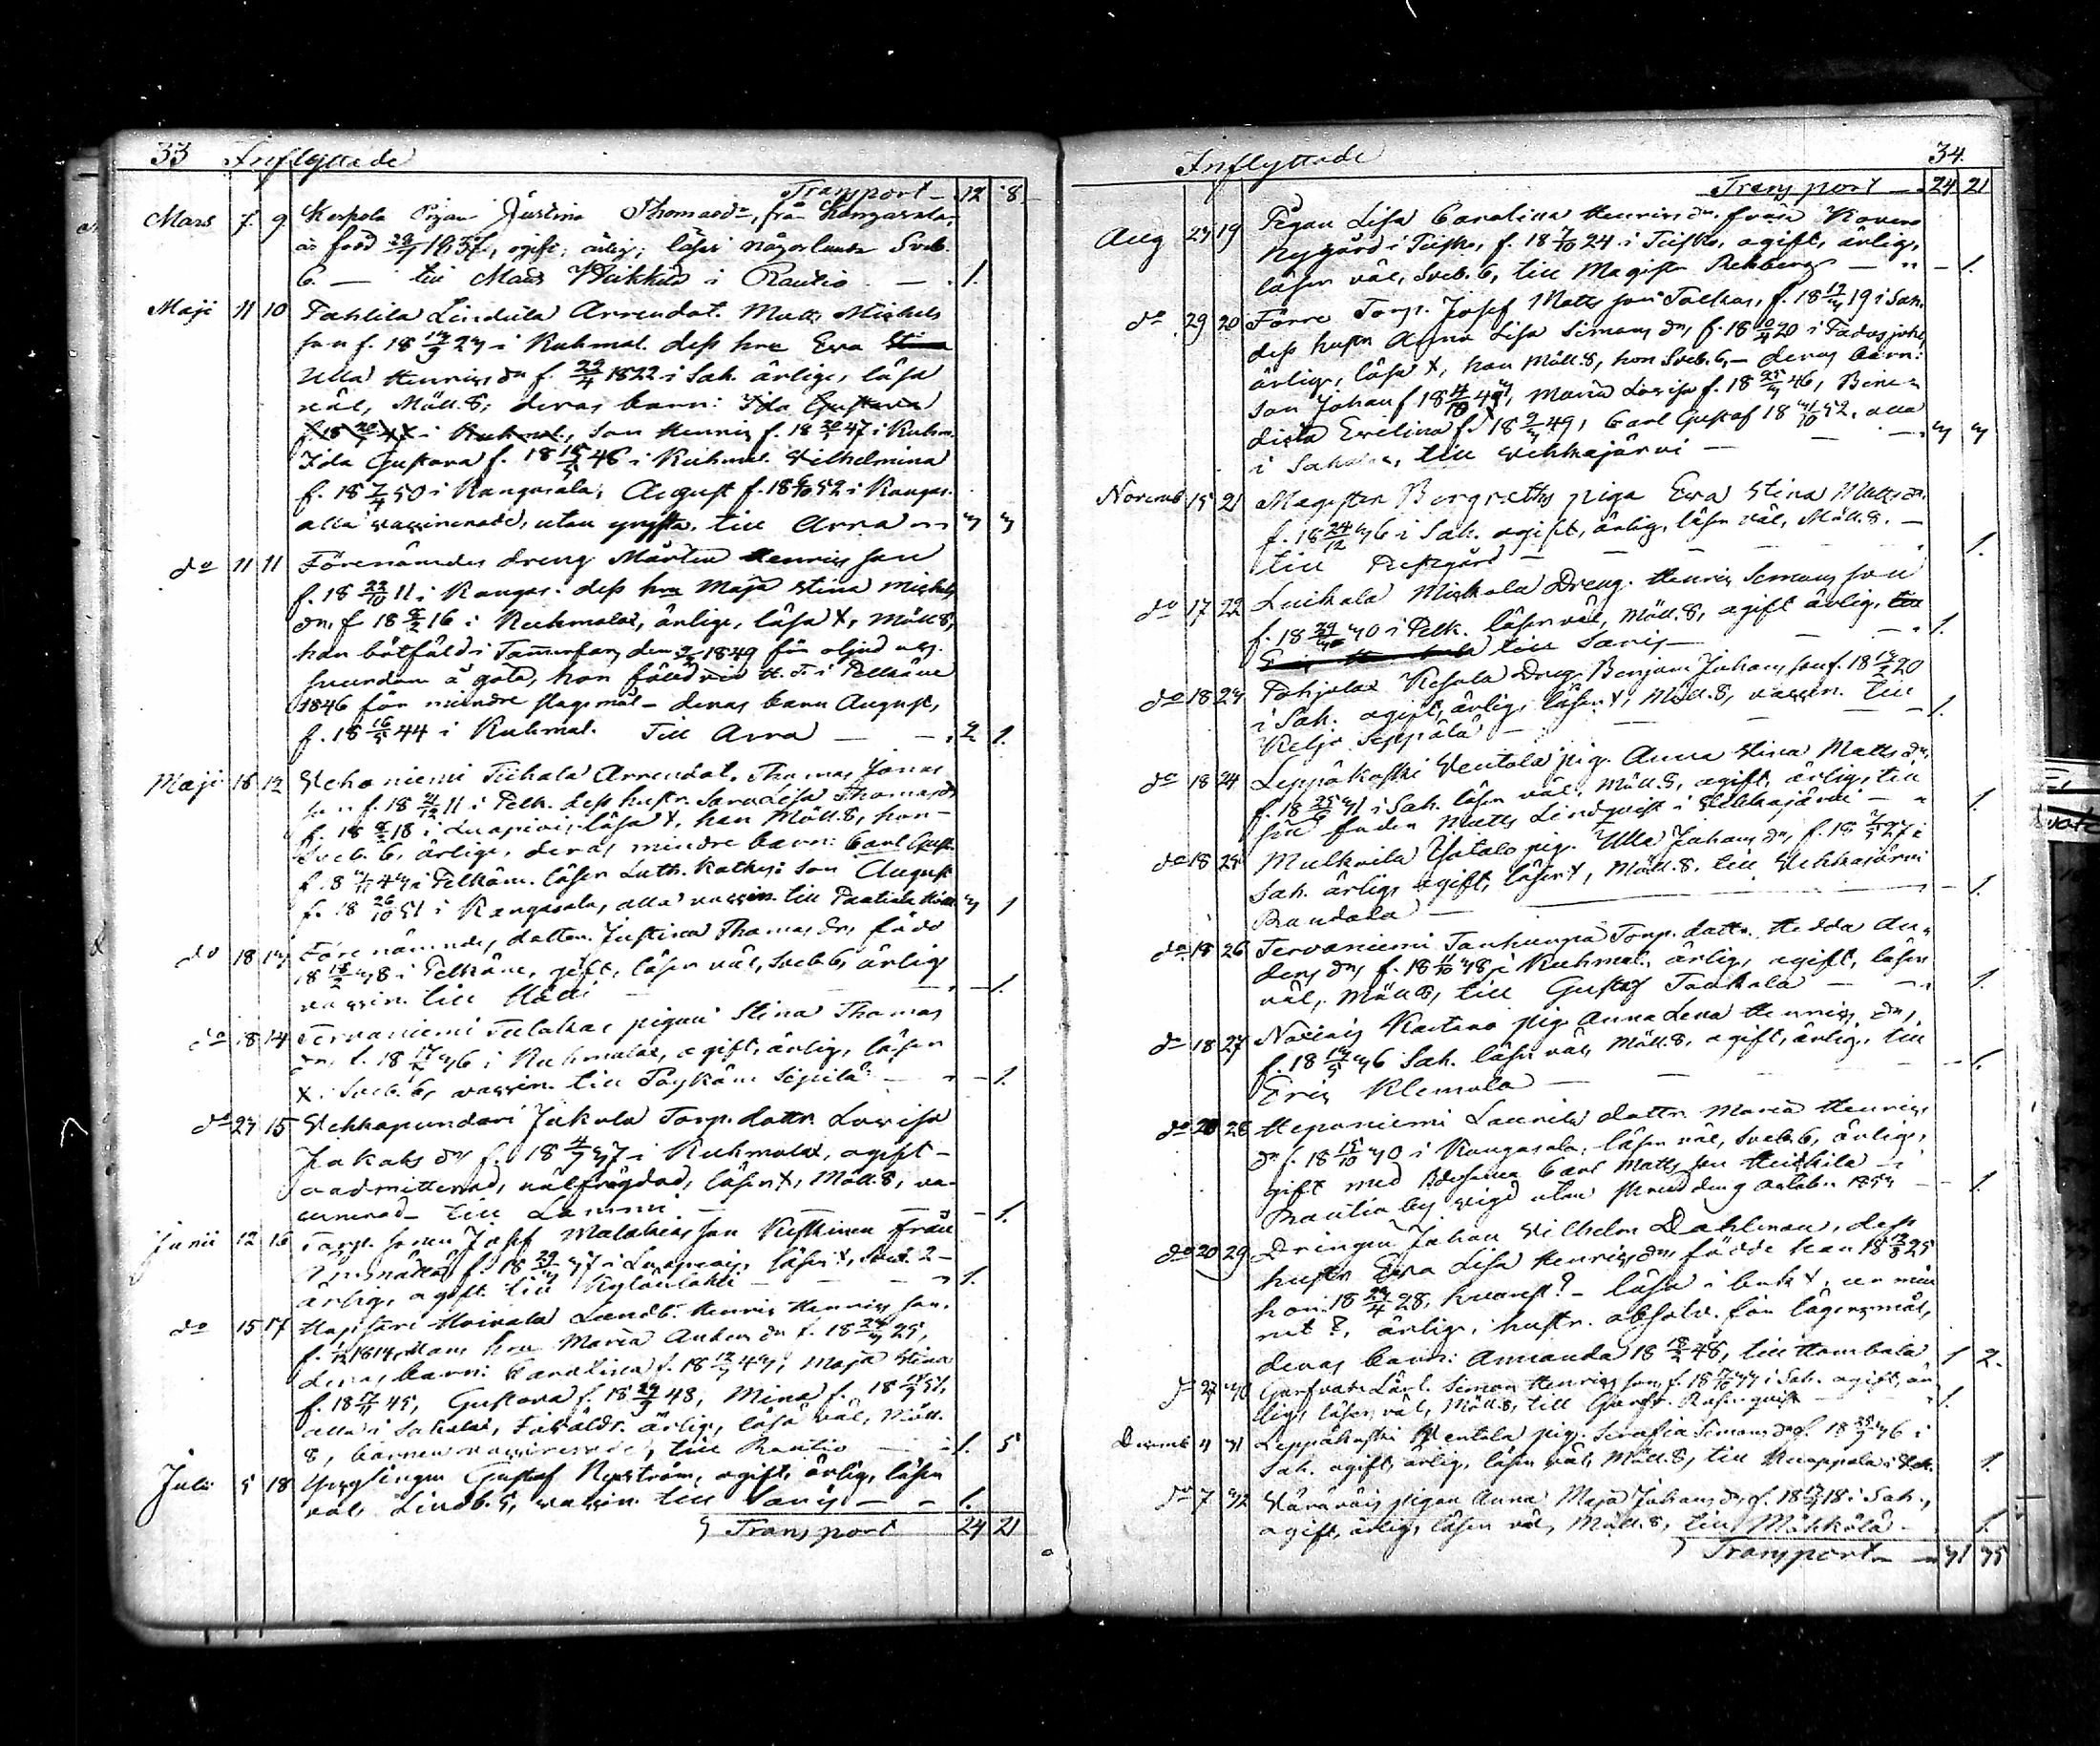 33 Inflyttade
Transport - 12 8
Mars 7. 9. Kerpola Pigan Justina Thomasdr, från Kangasala,
är född 1837, ogift, ärlig, läser någorlunda Sveb.
6. — till Mats Heikkilä i Rautio — 1.
Maji 11 10 Tahlila Lindula Arrendat. Matts Michels
son f. 18 i Kuhmal. dess hru Eva Stina
Ulla Henrics dr f. 29/4 1822 i Sah. ärlige, läsa
väl, Möll. 8; deras barn: Ida Gustava
i Kuhmal., son Henric f. 18 20/ 47 i Kuhm.
Ida Gustava f. 18 46 i Kuhmal. Wilhelmina
f. 18 7/4 50 i Kangasala, August f. 18 52 i Kangas.
alla vaccinerade, utan till Arra 3 3
do 11 11 Förenämndes dreng Mårten Henrics son
f. 18 22/10 11. i Kangas. dess hru Maja Stina Michels
dr, f 18 8/2 16 i Kuhmalax, ärlige, läsa x, Möll 8,
han bötfäld i Tammerfors den 1849 för oljud
å gata, hon fälld vid H. T. i Pelkäne
1846 för mindre slagsmål - deras barn August,
f. 18 16/5 44 i Kuhmal. Till Arra — 2 1.
Maji 16 12 Wehoniemi Tiihala Arrendat. Thomas Jonas
son f. 18 11 i Pelk. dess hustr. Sara Lisa Thomasdr
f. 18 18 i Luopiois, läsa x, han Möll. 8, hon -
Sveb. 6, ärlige, deras mindre barn: Carl Gust.
f. 18 i Pelkäne. läser Luth. Kathes: son August
f. 18 26/10 51 i Kangasala, alla vaccin. till 3 1
do 18 13 Förenämndes dotter Justina Thomas dr, född
18 18/2 38 i Pelkäne, gift, läser väl, Sveb. 6, ärlig
vaccin. till — 1.
do 18 14 Tervaniemi Tulokas pigan Stina Thomas
dr, f. 18 36 i Kuhmalax, ogift, ärlig, läser
x. Sveb. 6, vaccin. till Seppilä — 1.
do 23 15 Wehkapundari Jakola Torp. dottr. Lovisa
Jakobs dr f. 18 4/7 37 i Kuhmalax, ogift -
oadmitterad, välfrägdad, läser x, Möll. 8, va-
cinerad till Lammi. — 1.
Junii 12 16 Torp. sonen Josef Malakias son Keskinen från
f. 18 29/ 37 i Luopiois, läser x, Sveb. 2 -
ärlig, ogift till Kylänlahti — 1.
do 15 17 Hapisari Hoivala Landb. Henric Henrics son.
f. 1814, hans hru Maria Anders dr f. 18 25,
deras barn: Carolina f. 18 43, Maja Stina
f. 18 45, Gustava f. 18 29/ 48, Mina f. 18 51,
alla i Sahalax, Föräldr. ärlige, läsa väl, Möll.
8, barnen vaccinerade, till Rautio — 1. 5
Julii 5 18 Ynglingen Gustaf Nyström, ogift, ärlig, läser
väl, Lindb. 5, vaccin. till Saris — 1.
Transport 24 21
Inflyttade 34.
Transport - 24 21
Aug 23 19 Pigan Lisa Carolina Henrics dr. från Kovero
Nygård i Teisko, f. 18 7/10 24 i Teisko, ogift, ärlig,
läser väl, Sveb. 6, till Magister Rehberg — 1.
do 29 20 Förre Torp. Josef Matts son Tacka, f. 18 19 i Sah.
dess hustr Anna Lisa Simons dr, f. 18 10/4 20 i Padasjoki,
ärlige, läsa x, han Möll. 8, hon Sveb. 6, - deras barn:
son Johan f 18, Maria Lovisa f. 18 46, Bene-
dicta Evelina f. 18 49, Carl Gustaf 18 52, alla
i Sahalax, till Wehkajärvi — 3 3
Novemb 15 21 Magister Bergroths piga Eva Stina Matts dr.
f. 18 24/12 36 i Sah. ogift, ärlig, läser väl, Möll. 8. -
till Prestgård — 1.
do 17 22 Luikala Mickola Dreng. Henric Simons son
f. 18 29/ 30 i Pelk. läser väl, Möll. 8, ogift ärlig, till
till Saris — 1.
do 18 23 Pohjola Kesola Dreng Benjam. Johans son f. 18 20
i Sah. ogift, ärlig, läser x, Möll. 8, vaccin. till
Keljo Seppälä — 1.
do 18 24 Leppäkoski Wentola pig. Anna Stina Matts dr,
f. 18 31 i Sah. läser väl, Möll. 8, ogift, ärlig, till
sin fader Matts Lindqvist i Wehkajärvi — 1.
do 18 25 Mulkoila Ylötalo pig. Ulla Johans dr, f. 18 27 i
Sah. ärlig, ogift, läser x, Möll. 8. till Wehkajärvi
Raudala — 1.
do 18 26 Tervaniemi Tanhunpä Torp. dottr. Hedda An-
ders dr, f. 18 11/10 38 i Kuhmal. ärlig, ogift, läser
väl, Möll. 8, till Gustaf Tankala — 1.
do 18 27 Norrois Kartano pig. Anna Lena Henrics dr,
f. 18 36 Sah. läser väl, Möll. 8, ogift, ärlig, till
Eric Klemola — 1.
do 20 28 Heponiemi Laurila dottr. Maria Henrics
dr f. 18 15/10 30 i Kangasala, läser väl, Sveb. 6, ärlig,
gift med Bdesonen Carl Matts son Heickilä -
Rautio by vigd utan skrud den 9 October 1853 — 1.
do 20 29 Drängen Johan Wilhelm Dahlman, dess
hustr Eva Lisa Henrics dr födde han 18 12/8 25
hon 18 23/4 28, hvarest? - läsa i bok x, ur min
net?, ärlige, hustr. absolv. för lägersmål,
deras barn: Amanda 18 18/2 48, till Hambala 1 2.
do 27 30 Garfvare Lärl. Simon Henrics son, f. 18 33 i Sah. ogift, är-
lig, läser väl, Möll. 8, till Garfv. Rosenqvist — 1.
Decemb 3 31 Leppäkoski Wentola pig. Serafia Simons dr f. 18 36 i
Sah. ogift, ärlig, läser väl, Möll. 8, till Knuppola i Sah. 1.
do 7 32 Wäränäis pigan Anna Maja Johans dr, f. 18 18 i Sah.,
ogift, ärlig, läser väl, Möll. 8, till Mähkölä 1.
Transport — 31 35